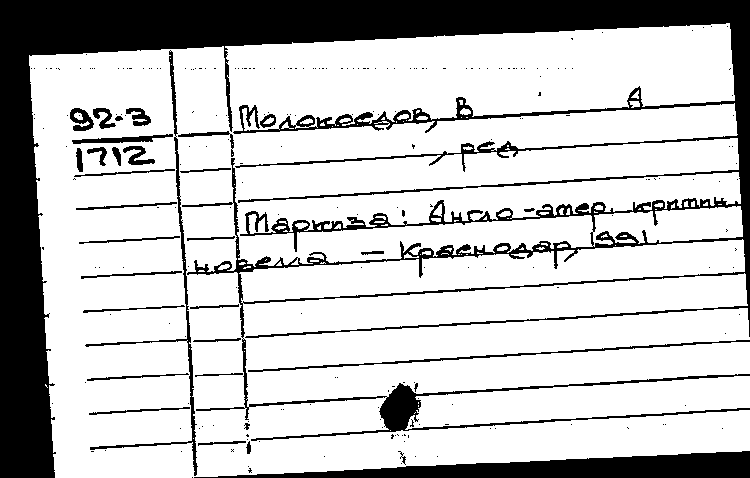 92-3
1712
Молокоедов, В А
, ред
Маркиза: Англо-амер. кримин.
новелла. — Краснодар, 1991.